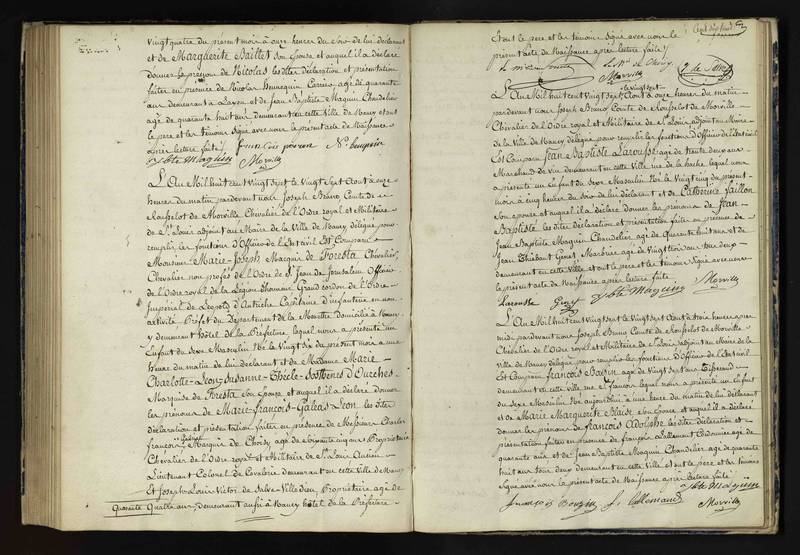 vingt quatre du présent mois à onze heures du Soir de lui déclarant
et de Marguerite Baillet Son épouse et auquel il a déclaré
donner le prénom de Nicolas les dites déclaration et présentation
faites en présence de Nicolas
et de Jean Baptiste Maquin Chandelier
agé de quarante huit ans demeurant en cette Ville de Nancy et ont
le pere et les témoins Signé avec nous le présent acte de Naissance
après lecture faite /.
jbte Maquin Morville
L'An Mil huit cent Vingt Sept le Vingt Sept Aout à onze
heures du matin pardevant nous Joseph Bruno Comte de
Rousselot de Morville Chevalier de l'Ordre royal et Militaire
de St. Louis adjoint au Maire de la Ville de Nancy délégué pour
remplir les fonctions d'Officier de l'état civil Est Comparu
Monsieur Marie-Joseph Marquis de Foresta Chevalier
Chevalier non profès de l'Ordre de St. Jean de Jerusalem Officier
de l'Ordre royal de la Légion d'honneur Grand cordon de l'Ordre
Impérial de Léopold d'Autriche Capitaine d'infanterie en non
activité Préfet du Département de la Meurthe Domicilié à Nancy
y demeurant hôtel de la Préfecture lequel nous a présenté un
Enfant du Sexe Masculin Né le Vingt Six du présent mois à une
heure du matin de lui déclarant et de Madame Marie
Charlotte-Léon-Suzanne-Thècle-Sosthènes d'Ourches
Marquise de Foresta Son épouse et auquel il a déclaré donner
les prénoms de Marie-François-Galéas Léon les dites
déclaration et présentation faites en présence de Messieurs Charles
François Marquis de Choisy agé de Soixante cinq ans Propriétaire
Chevalier de l'Ordre royal et Militaire de St. Louis Ancien
Lieutenant Colonel de Cavalerie demeurant en cette Ville de Nancy
Et Joseph Louis Victor de Salve-Villedieu Propriétaire agé de
Quarante Quatre ans demeurant aussi à Nancy hôtel de la Préfecture
Et ont le pere et les témoins Signé avec nous le
présent acte de Naissance après lecture faite /.
Morville
le vingt sept
L'An Mil huit cent Vingt Sept Aout à onze heures du matin
pardevant nous Joseph Bruno Comte de Rousselot de Morville
Chevalier de l'Ordre royal et Militaire de St. Louis adjoint au Maire
de la Ville de Nancy délégué pour remplir les fonctions d'Officier de l'état civil
Est Comparu Jean Baptiste Larousse agé de trente deux ans
Marchand de Vin demeurant en cette Ville rue de la hache lequel nous
a présenté un Enfant du Sexe Masculin Né le Vingt cinq du présent
mois à cinq heures du Soir de lui déclarant et de Catherine Vaillon
Son épouse et auquel il a déclaré donner les prénoms de Jean
Baptiste les dites déclaration et présentation faites en présence de
Jean Baptiste Maquin Chandelier agé de Quarante huit ans et de
Jean Thiébaut agé de Vingt trois ans tous deux
demeurant en cette Ville et ont le pere et les témoins Signé avec nous
le présent acte de Naissance après lecture faite
Larousse jbte Maquin Morville
L'An Mil huit cent Vingt Sept le Vingt Sept Aout à trois heures après
midi pardevant nous Joseph Bruno Comte de Rousselot de Morville
Chevalier de l'Ordre royal et Militaire de St. Louis adjoint au Maire de la
Ville de Nancy délégué pour remplir les fonctions d'Officier de l'état civil
Est Comparu François agé de Vingt Sept ans Tisserand
demeurant en cette Ville lequel nous a présenté un Enfant
du Sexe Masculin Né aujourd'hui à une heure du matin de lui déclarant
et de Marie Marguerite Blaise Son épouse et auquel il a déclaré
donner les prénoms de François Adolphe les dites déclaration et
présentation faites en présence de François Cordonnier agé de
quarante ans et de Jean Baptiste Maquin Chandelier agé de quarante
huit ans tous deux demeurant en cette Ville et ont le pere et les témoins
Signé avec nous le présent acte de Naissance après lecture faite
jbte Maquin
Morville